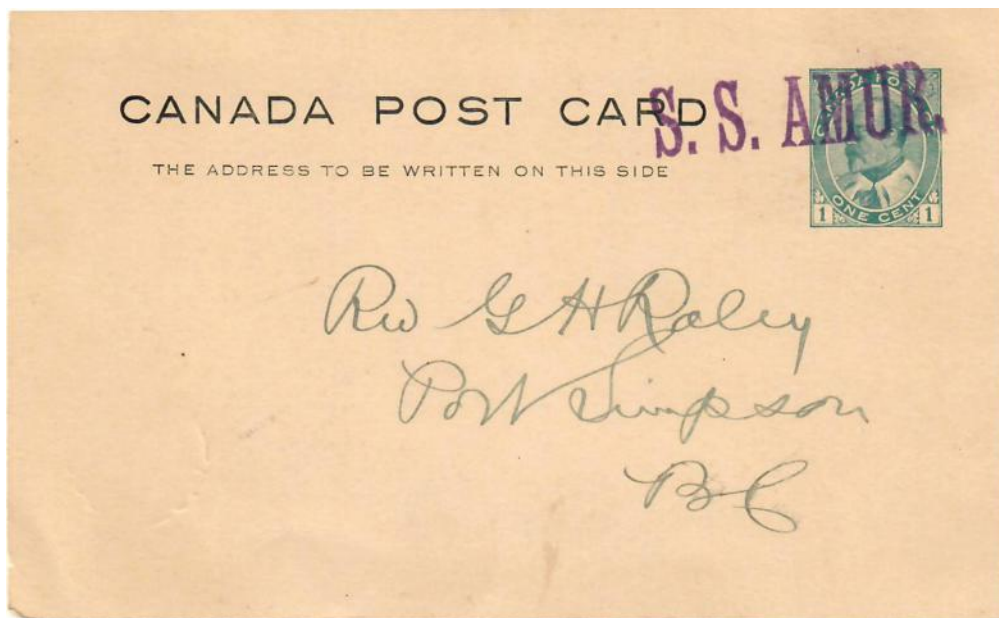 CANADA POST CARD
S. S. AMUR.
THE ADDRESS TO BE WRITTEN ON THIS SIDE
ONE CENT
1 1
Rev G H Raley
Port Simpson
B C